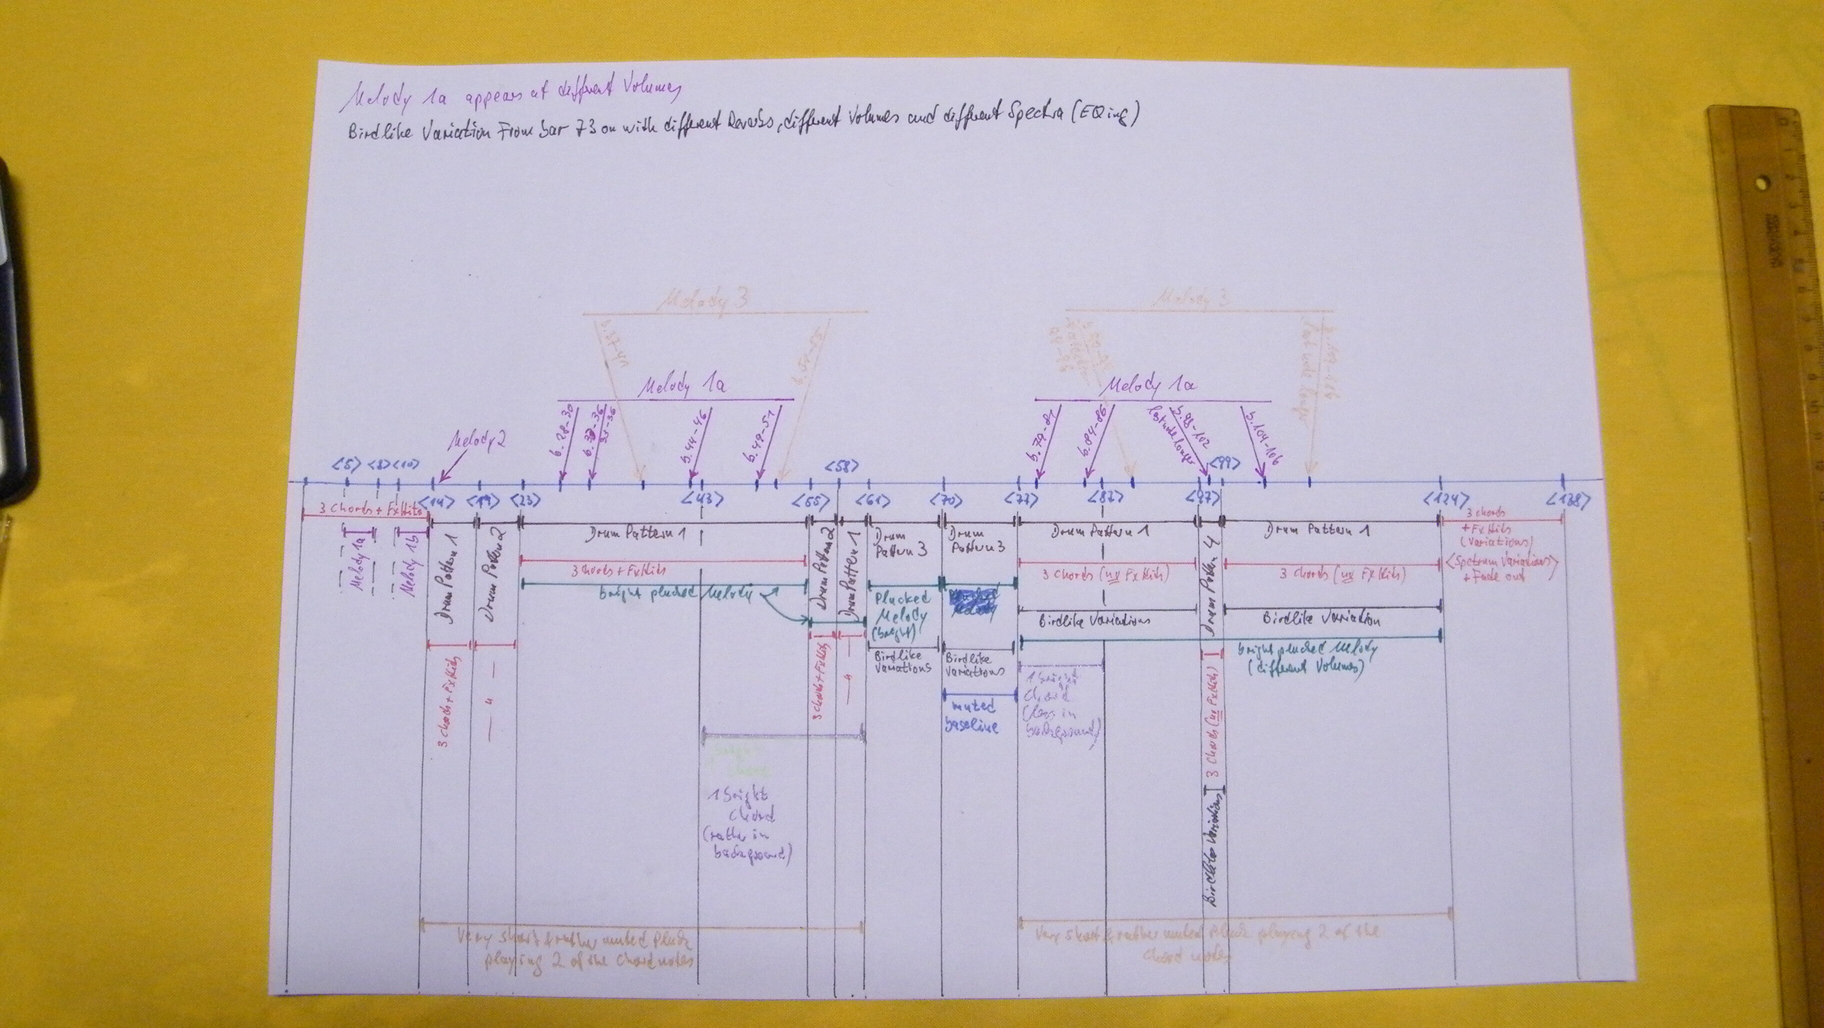 Melody 1a appears at different Volumes
Birdlike Variation From bar 73 on with different Reverbs, different Volumes and different Spectra (EQing)
Melody 3
Melody 3
b.37-41
Melody 1a
Melody 1a
b.28-30
35-36
b.44-46
b.49-51
b.79-81
b.84-86
b.98-102
b.104-106
Melody 2
<5> <8> <10>
<58>
<99>
<14> <19> <23> <43> <55> <61> <70> <73> <82> <97> <124> <138>
3 Chords + FxHits
Melody 1a
Melody 1b
Drum Pattern 1
Drum Pattern 2
Drum Pattern 1
3 Chords + FxHits
bright plucked Melody
Drum Pattern 2
Drum Pattern 1
Drum
Pattern 3
Plucked
Melody
(bright)
Birdlike
Variations
Drum
Pattern 3
Birdlike
Variations
muted
baseline
Drum Pattern 1
3 Chords (no FxHits)
Birdlike Variations
Drum Pattern 4
Drum Pattern 1
3 Chords (no FxHits)
Birdlike Variation
bright plucked Melody
(different Volumes)
3 Chords
+ FxHits
(Variations)
<Spectrum Variations>
+ Fade out
3 Chords + FxHits
— " —
3 Chords + FxHits
— " —
1 bright
Chord
(rather in
background)
1 bright
Chord
(less in
background)
3 Chords (no FxHits)
Birdlike Variations
Very short & rather muted Pluck
playing 2 of the Chord notes
Very short & rather muted Pluck playing 2 of the
Chord notes